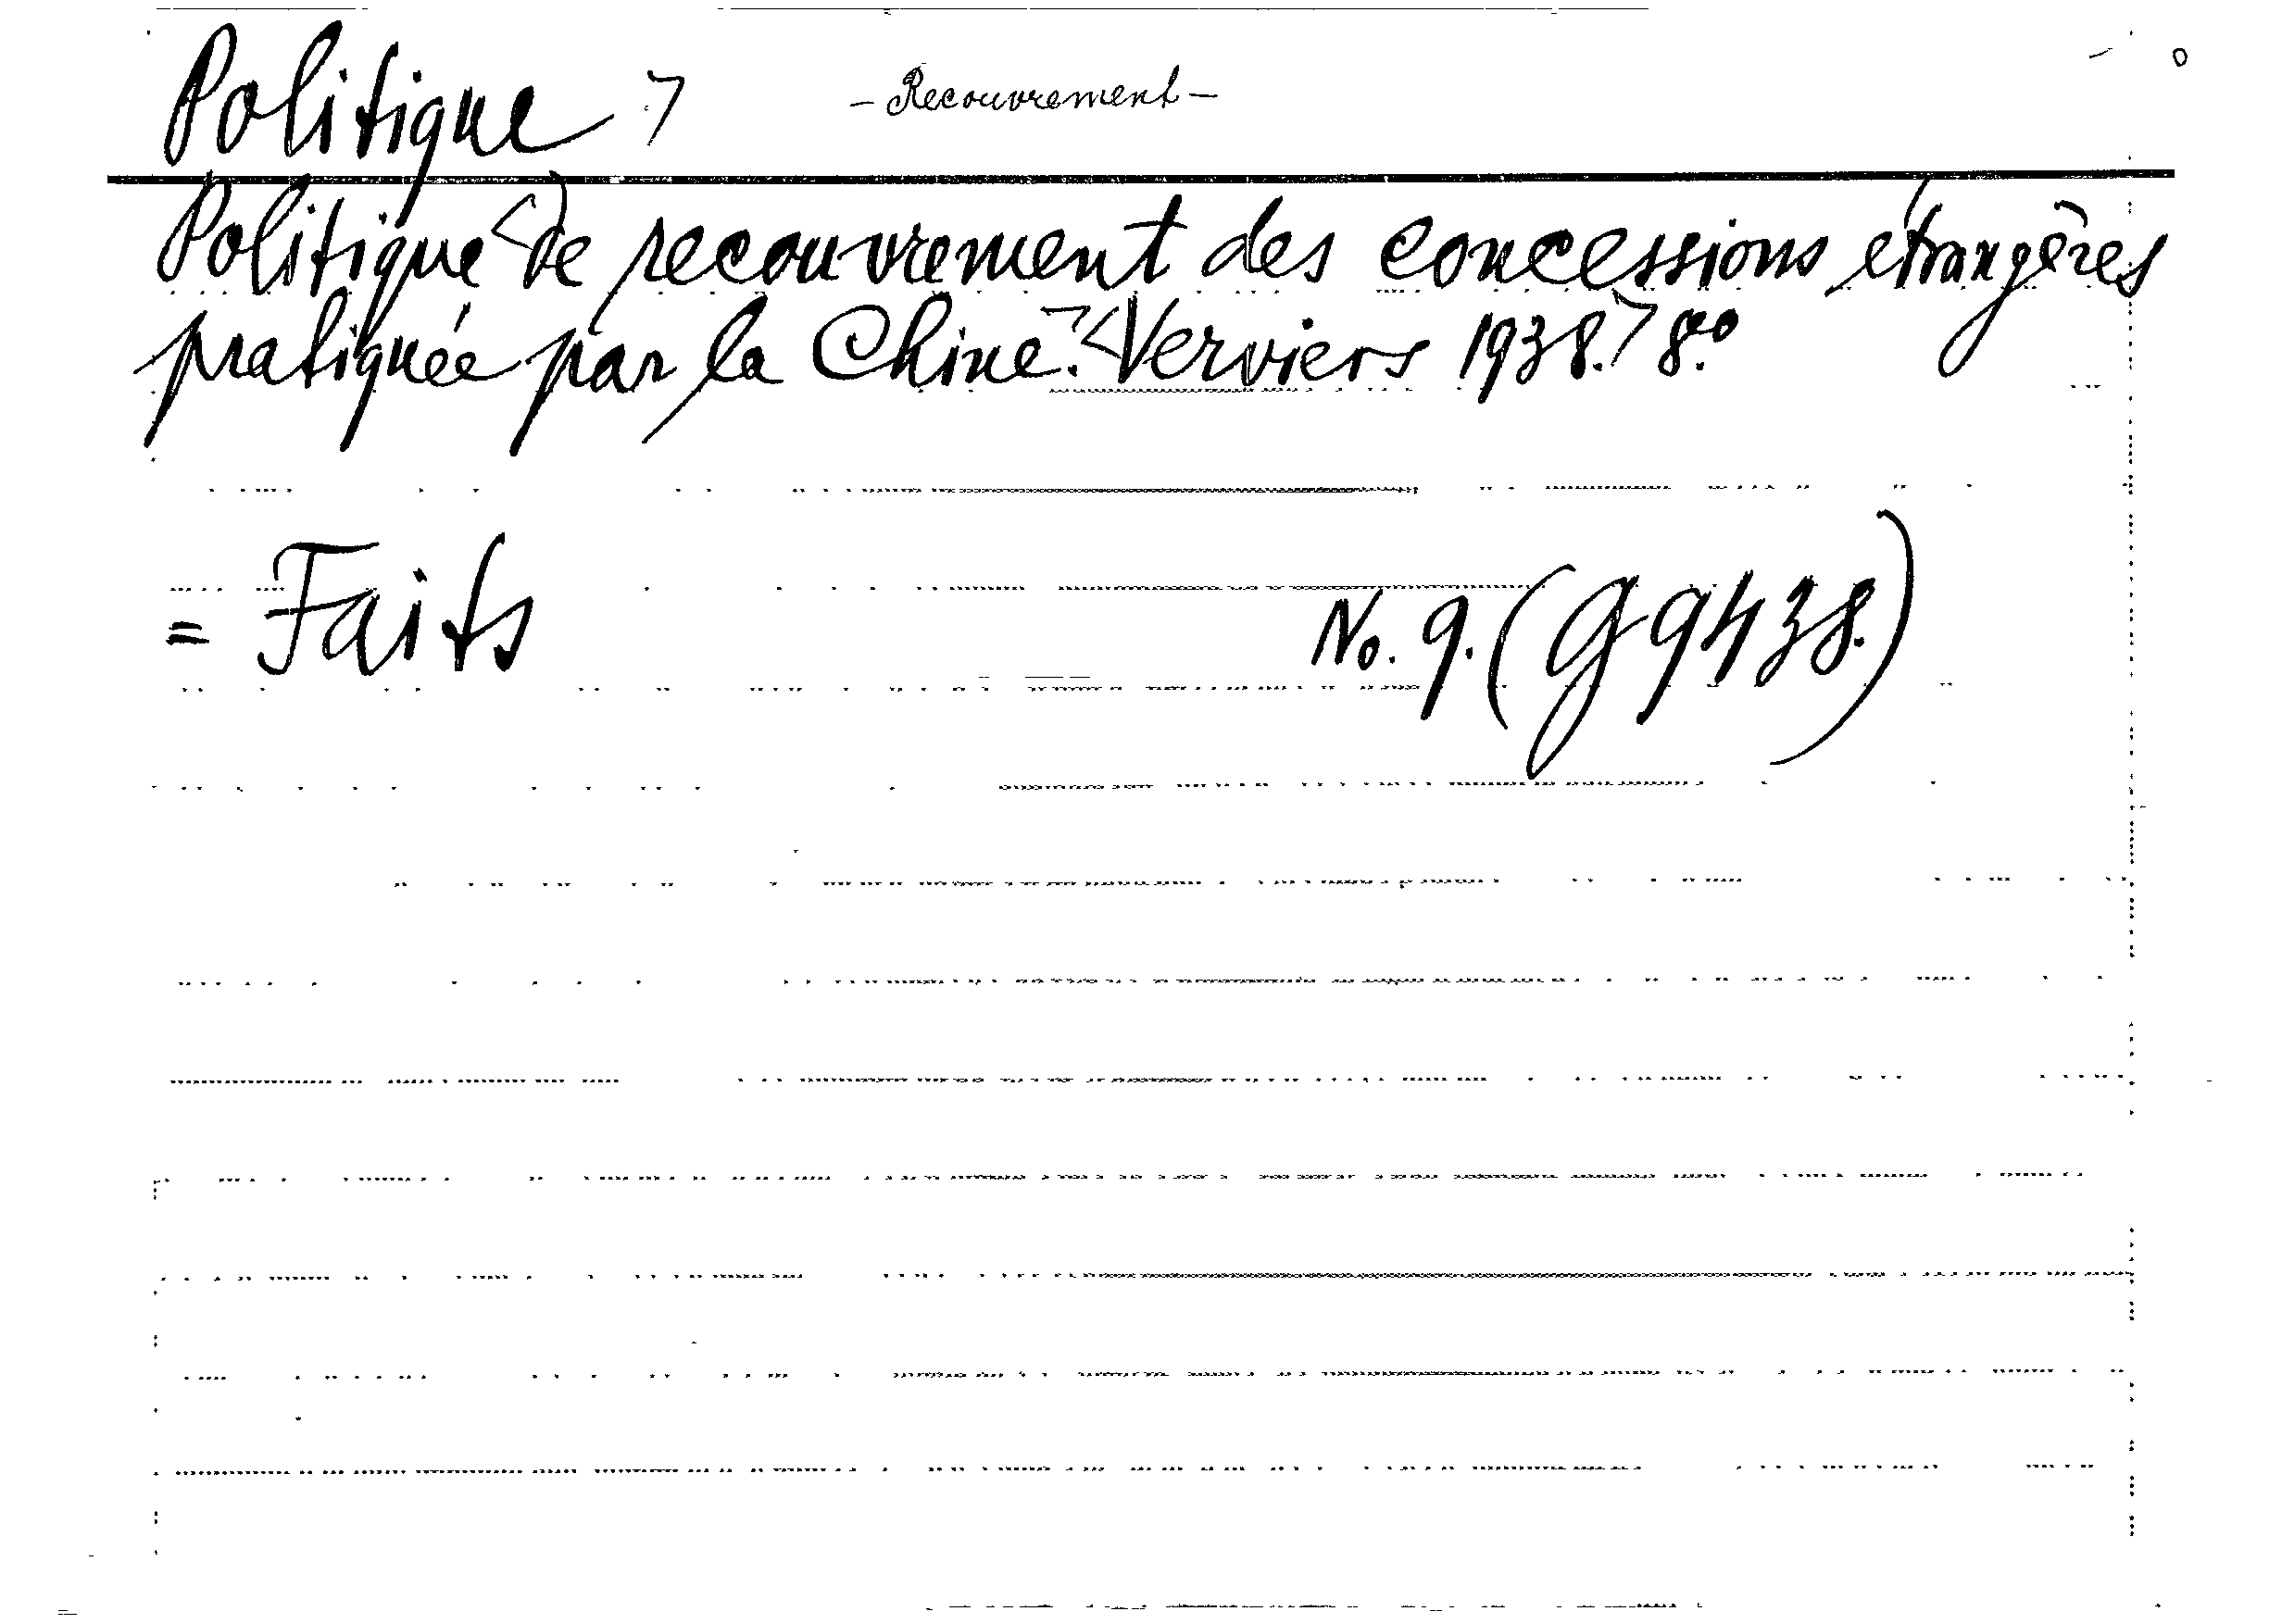 Politique > – Recouvrement –
Politique <de recouvrement des concessions étrangères
pratiquée par la Chine.> <Verviers 1938.> 8.º
= Faits No. 9. (G 9438.)